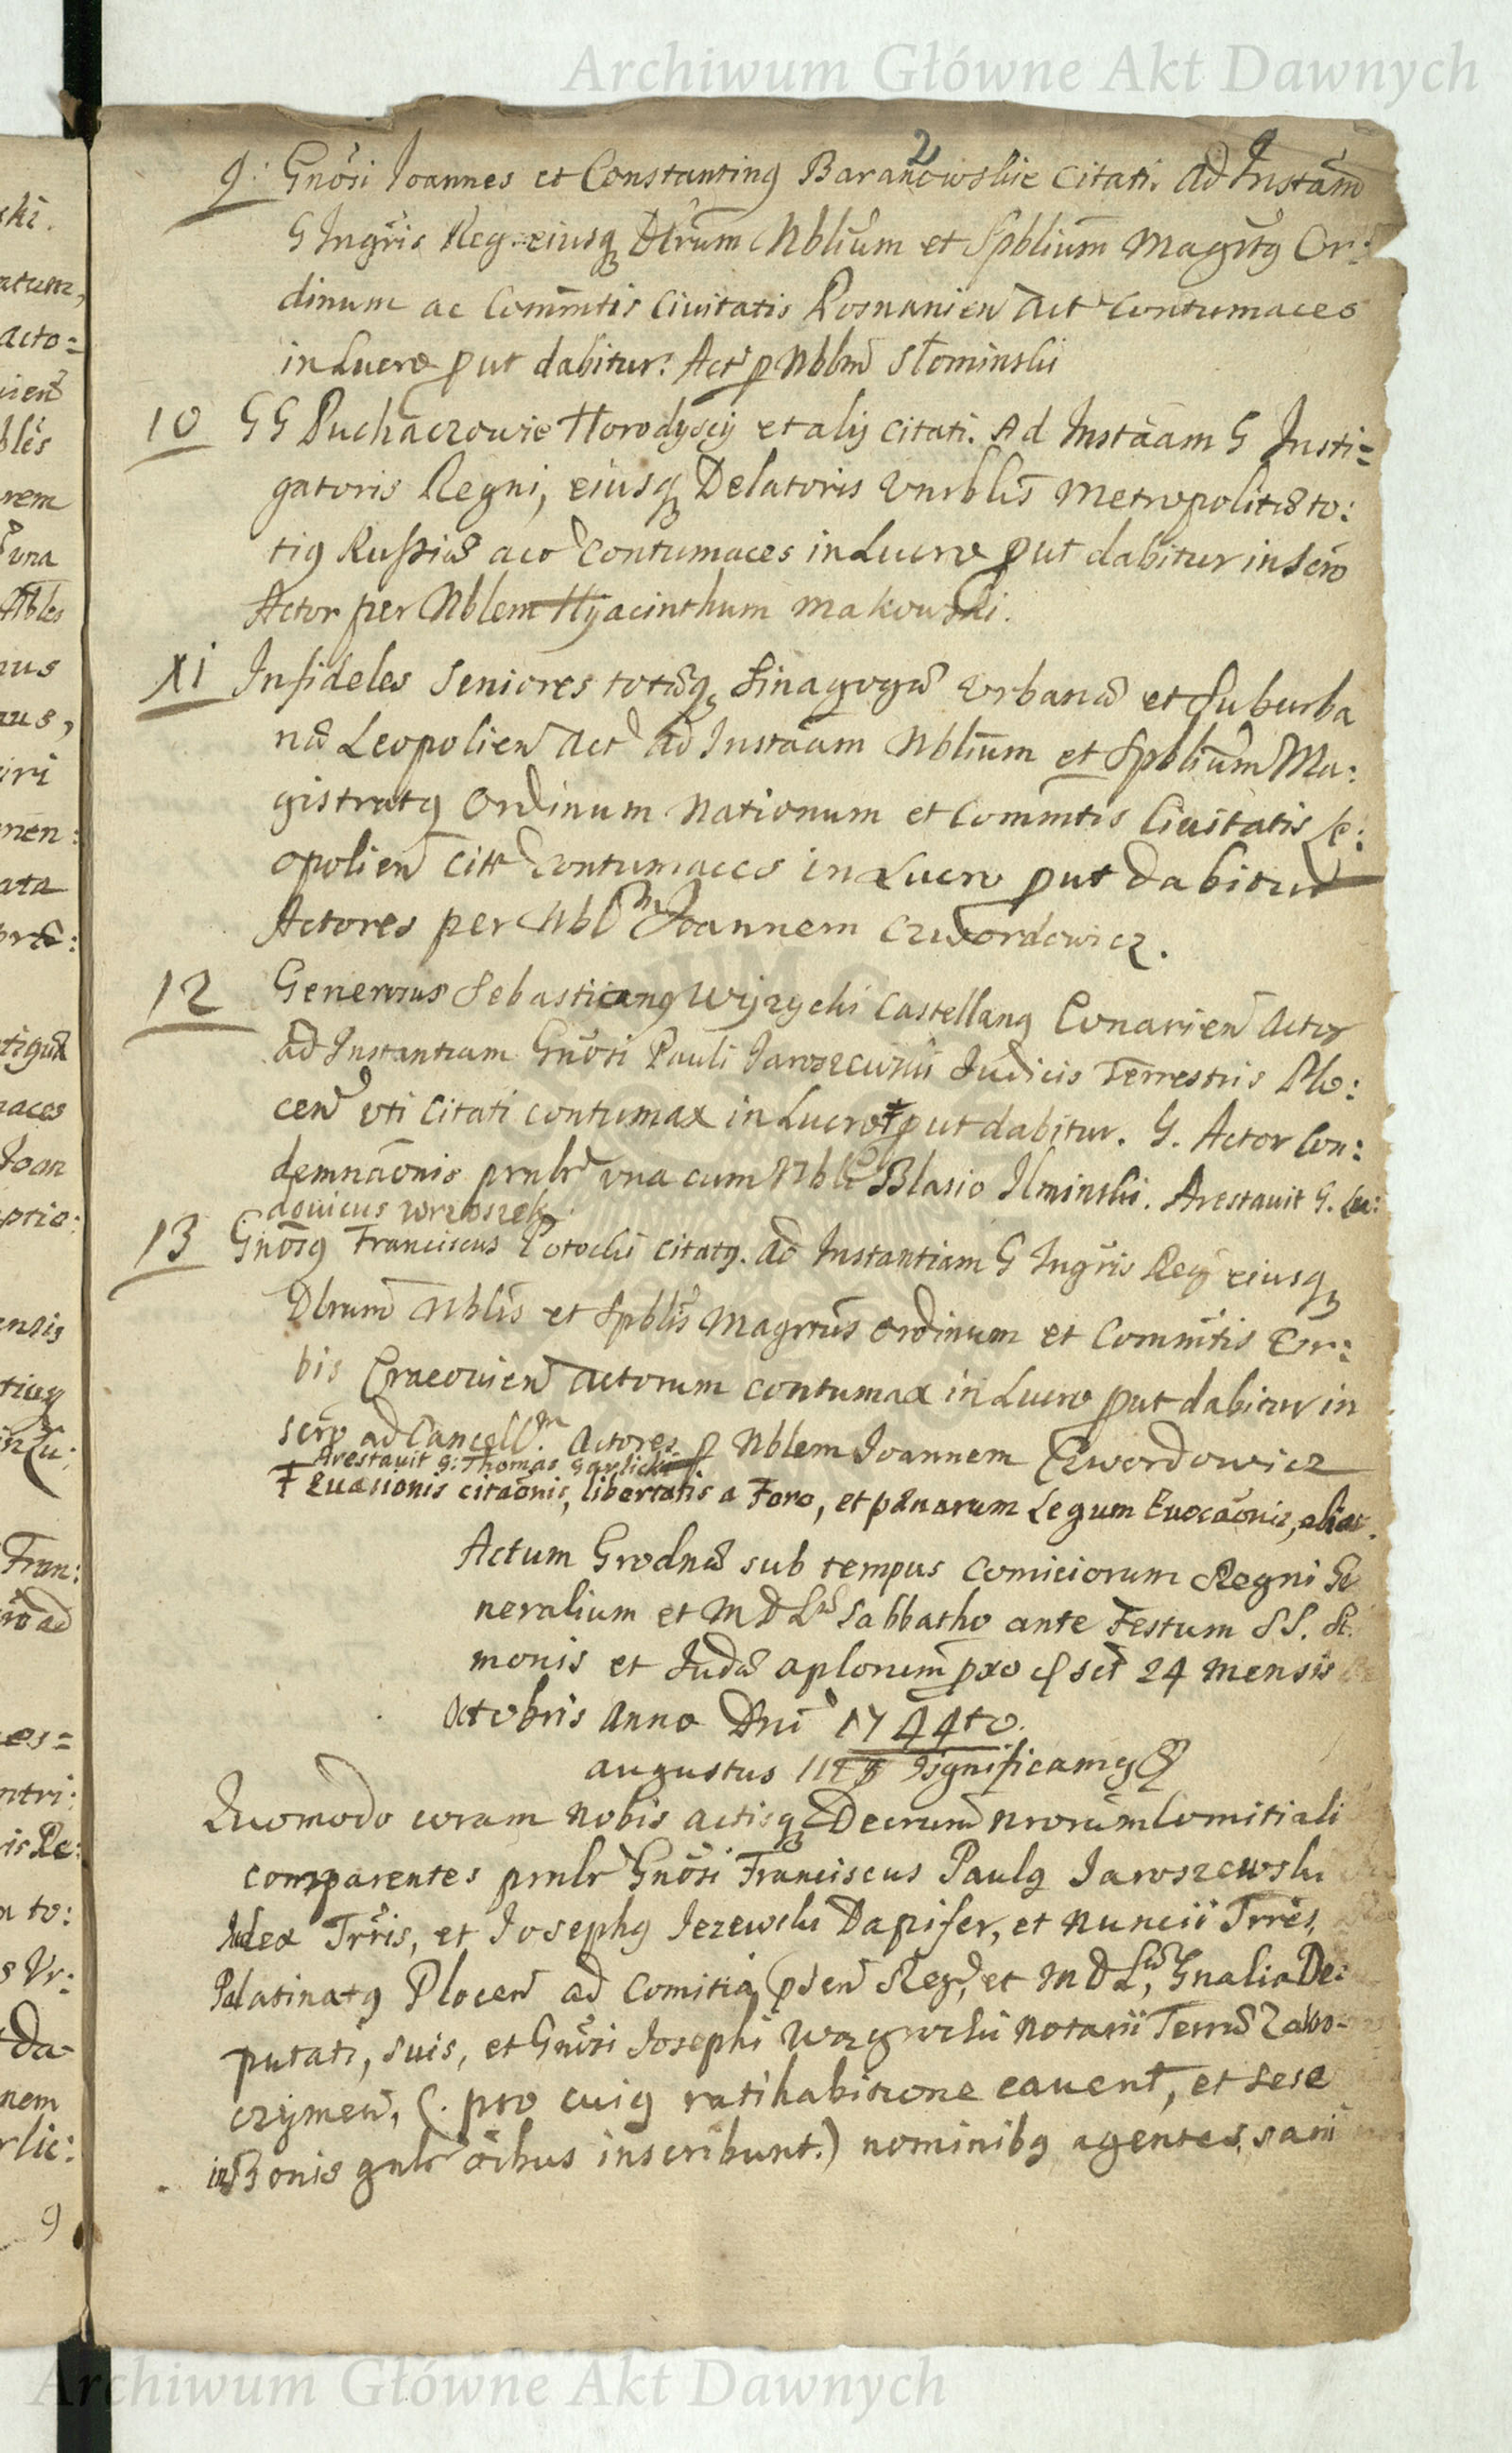 Archiwum Główne Akt Dawnych
2
9. Gnosi Joannes et Constantinq Baranowskie Citati. Ad Instam
G Ingris Reg. eiusq Dlrum Nblium et Spblium Magrtq Or:
dinum ac Commtis Civitatis Posnanien Act Contumaces
in Lucro put dabitur. Act p Nblm Słominski
10 GG Puchaczowie Horodyscy et alij Citati. Ad Instaam G Insti=
gatoris Regni, eiusq Delatoris Vnrblis Metropolitæ to:
tiq Russiæ aco Contumaces in Lucro put dabitur in scro
Actor per Nblem Hyacinthum Makowski.
XI Infideles Seniores totæq Sinagogæ Vrbanæ et Suburba
næ Leopolien Act ad Instaam Nblium et Spblium Ma:
gistratq Ordinum Nationum et Commtis Civitatis Le:
opolien Citt Contumaces in Lucro put dabitur
Actores per Nblm Joannem Czwordowicz.
12 Generosus Sebastianq Wyzycki Castellanq Conarien Actor
ad Instantiam Gnosi Pauli Jaroszewski Judicis Terrestris Plo:
cen uti Citati contumax in Lucro ‡ put dabitur. G. Actor Con:
demnaonis prnlr una cum Nbli Blasio Ilminski. Arestavit G. Lu:
dovicus Wrzoszek.
13 Gnosq Franciscus Potocki citatq. ad Instantiam G Ingris Reg eiusq
Dlrum Nblis et Spblis Magrtus Ordinum et Commtis Vr:
bis Cracovien Actorum contumax in Lucro put dabitur in
scro ad Cancellm. Actores p Nblem Joannem Czwordowicz
Arestavit G: Thomas Garlicki
‡ Evasionis citaonis, libertatis a Foro, et pænarum Legum Evocaonis, alias.
Actum Grodnæ sub tempus Comiciorum Regni Ge
neralium et M D Læ Sabbatho ante Festum SS. Si
monis et Judæ aplorum pxo sct 24 Mensis
Octobris Anno Dni 1744to.
Augustus IIItq Significamq
Quomodo coram Nobis actisq Decrum Nrorum Comitiali
comparentes prnlr Gnosi Franciscus Paulq Jaroszewski
Judex Trris, et Josephq Jezewski Dapifer, et Nuncii Trres,
Palatinatq Plocen ad Comitia psen Reg, et M D Læ, Gnalia De:
putati, suis, et Gnosi Josephi Wazgrocki Notarii Terræ Zawo-
czymen, (. pro cuiq ratihabitione cavent, et sese
in Bonis gnlr oibus inscribunt.) nominibq agentes, sani
Archiwum Główne Akt Dawnych